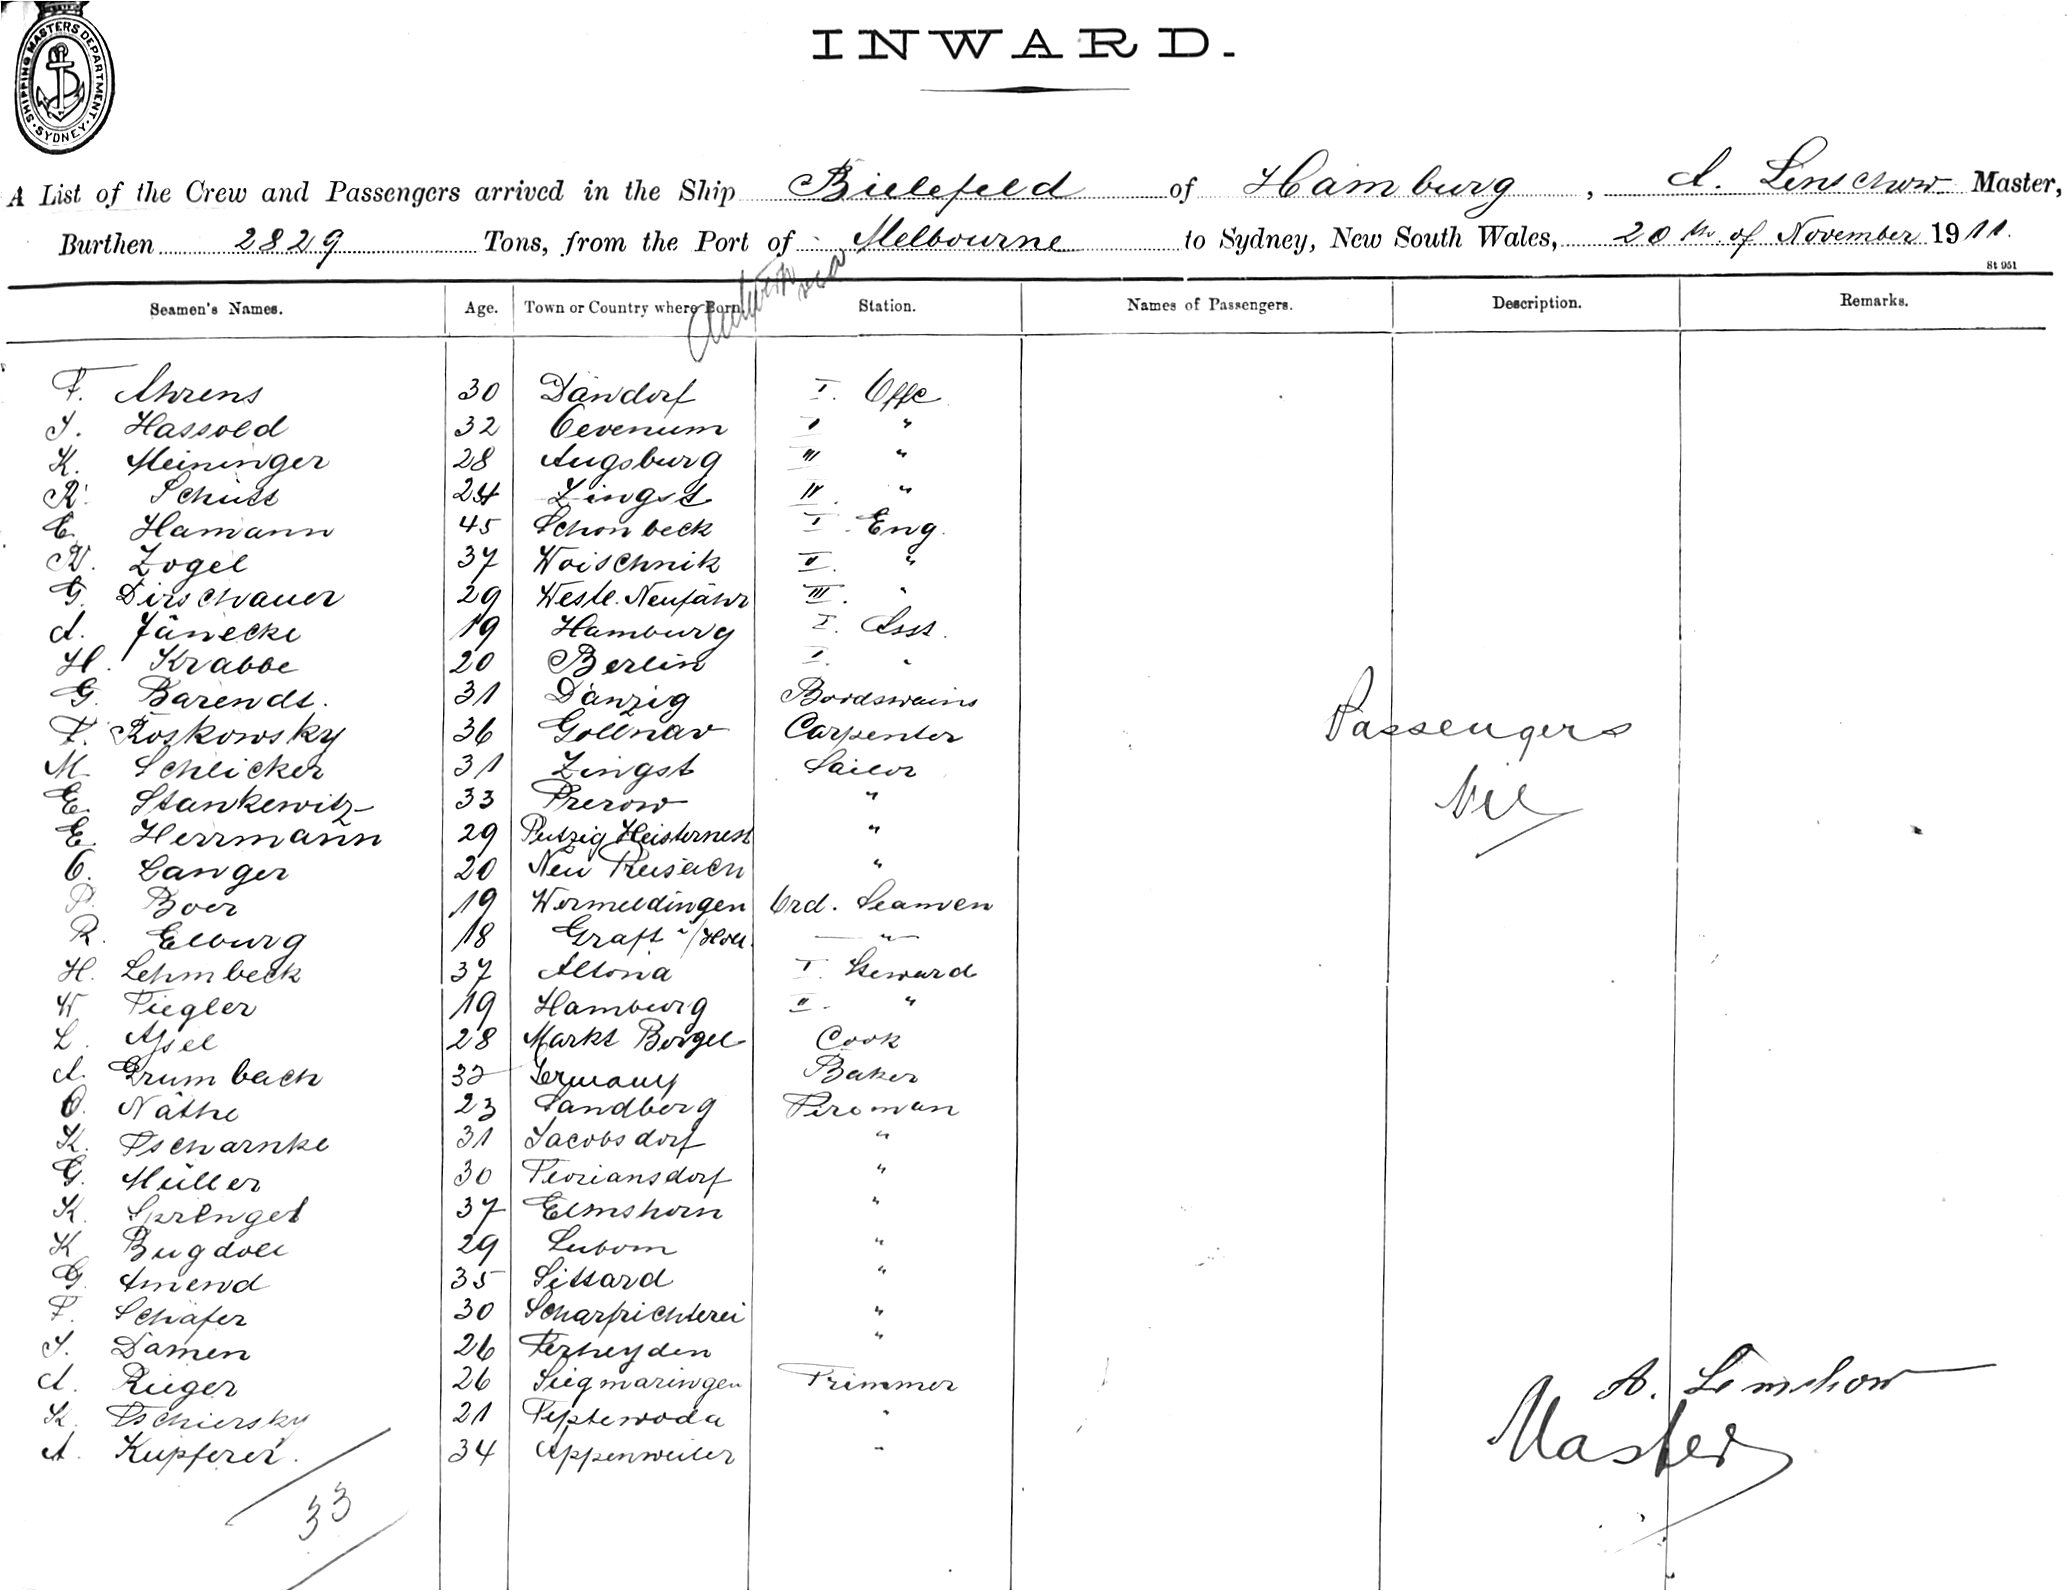 SHIPPING MASTERS DEPARTMENT. SYDNEY.
INWARD.
A List of the Crew and Passengers arrived in the Ship Bielefeld of Hamburg, A. Linschow Master,
Burthen 2829 Tons, from the Port of Melbourne to Sydney, New South Wales, 20th of November 1911.
St 951
Seamen's Names. Age. Town or Country where Born. Station. Names of Passengers. Description. Remarks.
F. Ahrens 30 Dändorf I. Offc
J. Hassold 32 Oevenum " "
K. Meininger 28 Augsburg III "
R. Schütt 24 Zingst IV. "
E. Hamann 45 Schönbeck I. Eng.
W. Zogel 37 Woischnik II. "
G. Dirschauer 29 Westl. Neufähr III. "
A. Jänecke 19 Hamburg I. Asst.
H. Krabbe 20 Berlin I. "
G. Barendt. 31 Danzig Bordswains
F. Roskowsky 36 Gollnow Carpenter
Passengers
M. Schlicker 31 Zingst Sailor
E. Stankewitz 33 Prerow "
Nil
E. Herrmann 29 Putzig Heisternest "
O. Langer 20 Neu "
P. Boer 19 Wermeldingen Ord. Seamen
R. Elburg 18 Graft /Holl. "
H. Lehmbeck 37 Altona I. Steward
W. Fiegler 19 Hamburg II. "
L. Assel 28 Markt Bergel Cook
A. Grumbach 32 Germany Baker
O. Näthe 23 Sandberg Fireman
K. Tscharnke 31 Jacobsdorf "
G. Müller 30 Floriansdorf "
K. Sprengel 37 Elmshorn "
K. Bugdoll 29 Lubom "
G. Amend 35 Sittard "
F. Schäfer 30 Scharfrichterei "
J. Damen 26 Terheyden "
A. Rieger 26 Siegmaringen Trimmer
A. Linschow
K. Tschiersky 21 Teptewoda "
Master
A. Kupferer. 34 Appenweiler "
33